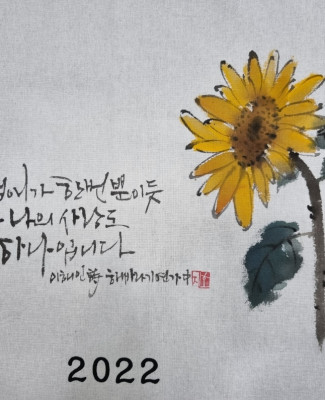 생애가 한번 뿐이듯
나의 사랑도
하나입니다
이해인 詩 해바라기연가 中
2022